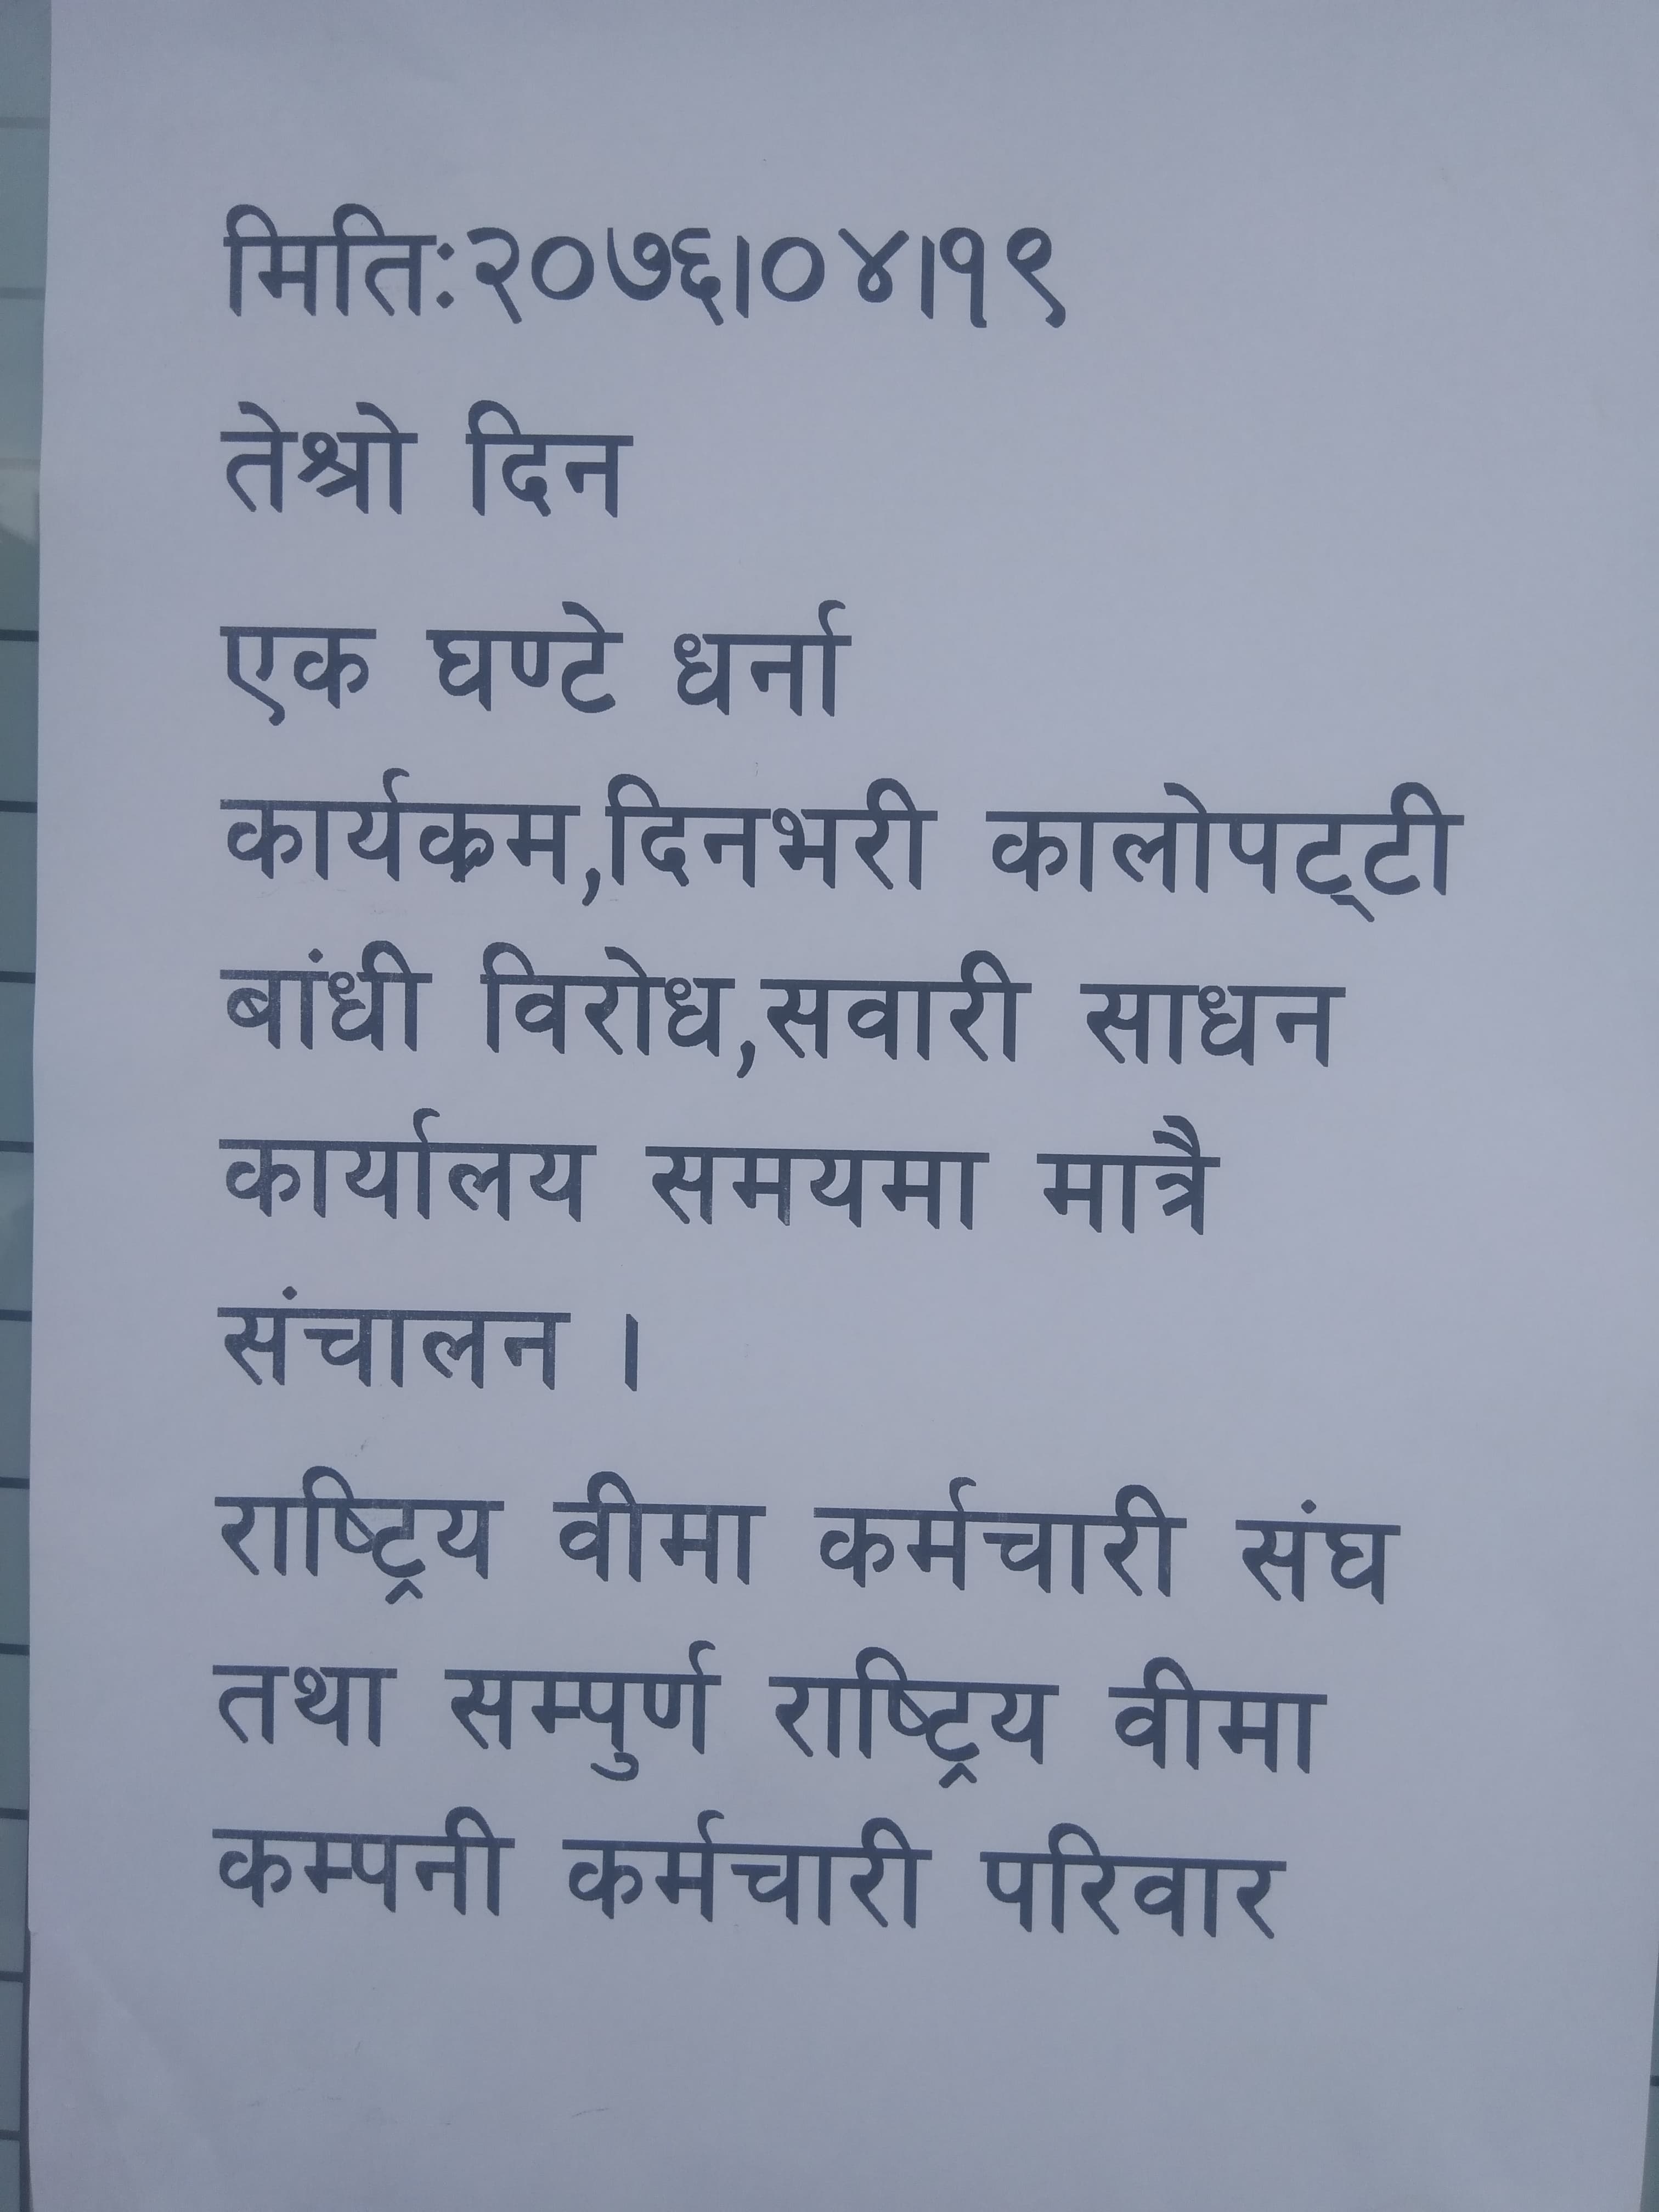 मितिः२०७६।०४।१९
तेश्रो दिन
एक घण्टे धर्ना
कार्यक्रम,दिनभरी कालोपट्‌टी
बांधी विरोध,सवारी साधन
कार्यालय समयमा मात्रै
संचालन ।
राष्ट्रिय वीमा कर्मचारी संघ
तथा सम्पुर्ण राष्ट्रिय वीमा
कम्पनी कर्मचारी परिवार